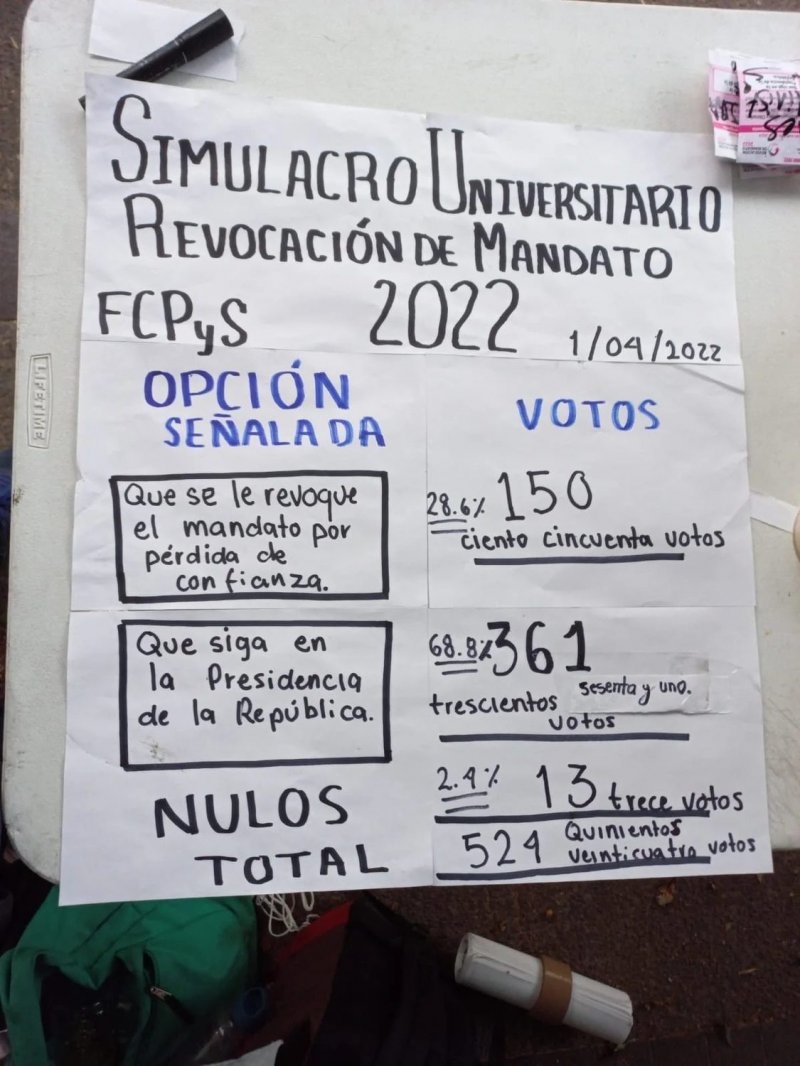 SIMULACRO UNIVERSITARIO
REVOCACIÓN DE MANDATO
FCPyS 2022 1/04/2022
OPCIÓN
SEÑALADA
VOTOS
Que se le revoque
el mandato por
pérdida de
confianza.
28.6% 150
ciento cincuenta votos
Que siga en
la Presidencia
de la República.
68.8% 361
trescientos sesenta y uno.
votos
NULOS
2.4% 13 trece votos
TOTAL
524 Quinientos
veinticuatro votos
LIFETIME